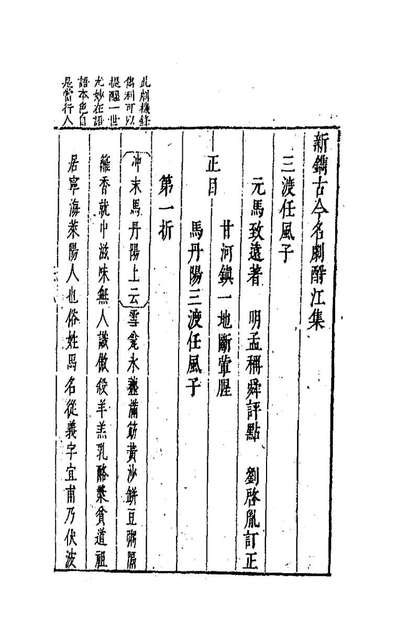 新鐫古今名劇酹江集
三渡任風子
元馬致遠著 明孟稱舜評點 劉啓胤訂正
正目
甘河鎮一地斷葷腥
馬丹陽三渡任風子
第一折
冲末馬丹陽上云雪瓮冰虀滿筯黄沙餅豆粥隔
籬香就中滋味無人識傲殺羊羔乳酪漿貧道祖
居寧海萊陽人也俗姓馬名從義字宜甫乃伏波
此劇機鋒
雋利可以
提醒一世
尤妙在語
語本色自
是當行人